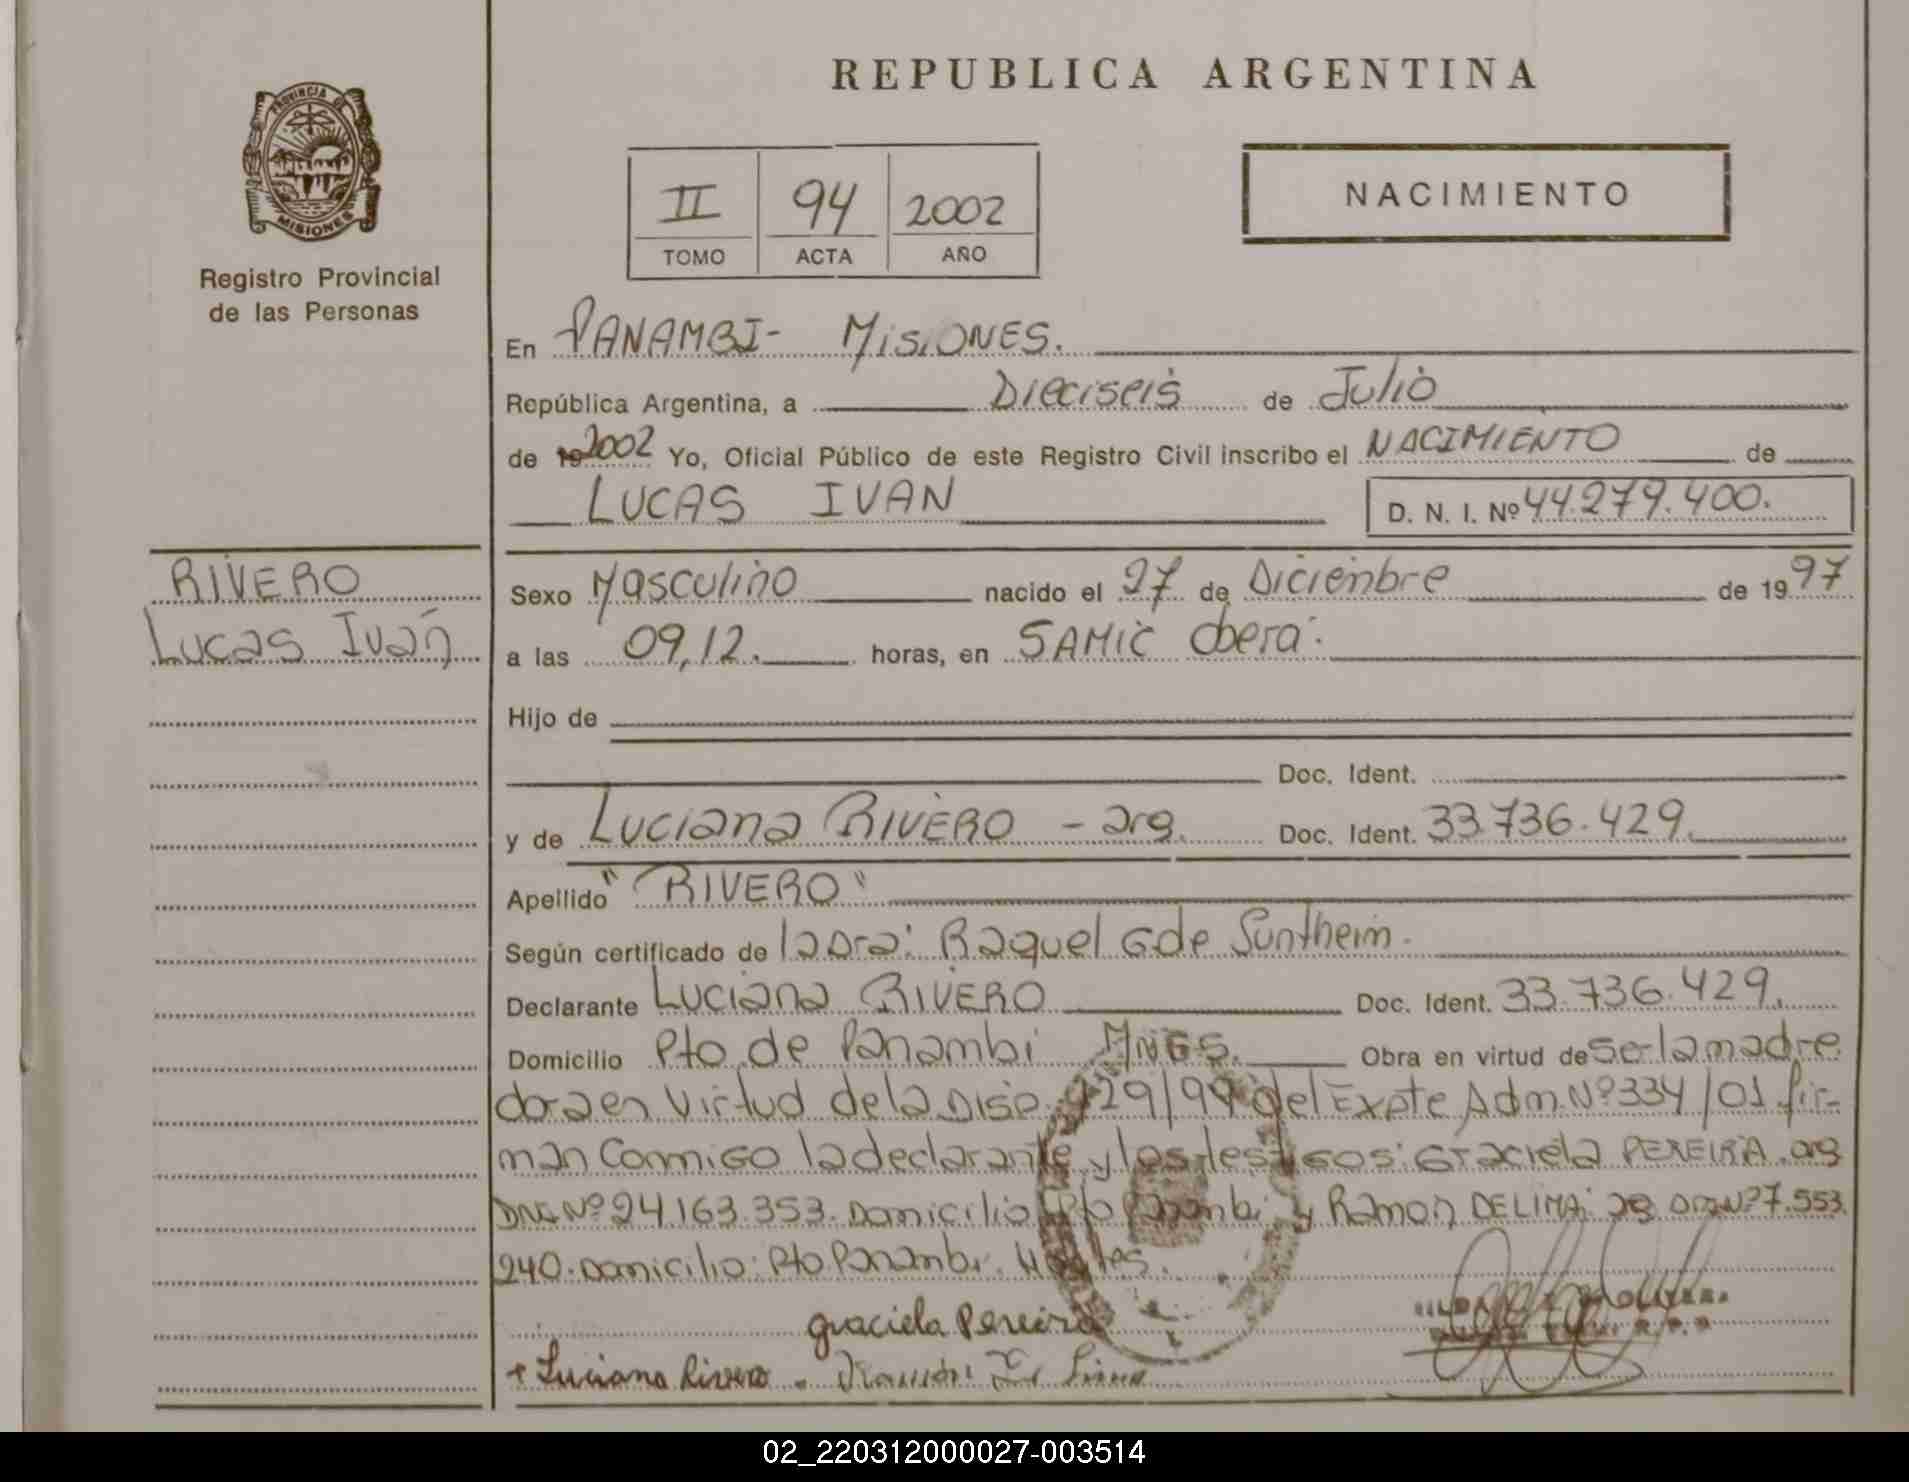 REPUBLICA ARGENTINA
PROVINCIA DE
MISIONES
Registro Provincial
de las Personas
II 94 2002
TOMO ACTA AÑO
NACIMIENTO
En PANAMBI- MisiONES.
República Argentina, a Dieciseis de Julio
de 19 2002 Yo, Oficial Público de este Registro Civil inscribo el NACIMIENTO de
LUCAS IVAN
D. N. I. Nº 44.279.400.
RIVERO
Lucas Iván
Sexo Masculino nacido el 27 de Diciembre de 19 97
a las 09,12. horas, en SAMIC Obera.
Hijo de
Doc. Ident.
y de Luciana RIVERO - arg. Doc. Ident. 33.736.429.
Apellido "RIVERO"
Según certificado de la Dra: Raquel G de Suntheim.
Declarante Luciana RIVERO Doc. Ident. 33.736.429.
Domicilio Pto. de Panambi Mnes. Obra en virtud de ser la madre
dora en Virtud de la Disp. 129/99 del Expte Adm. Nº 334/01 fir-
man Conmigo la declarante y los testigos: Graciela PEREIRA. arg
DNI Nº 24.163.353. Domicilio Pto Panambi y Ramon DELIMA: arg DNI Nº 7.553.
240. Domicilio: Pto Panambi.
graciela Pereira
+ Luciana Rivero . Ramón De Lima
02_220312000027-003514